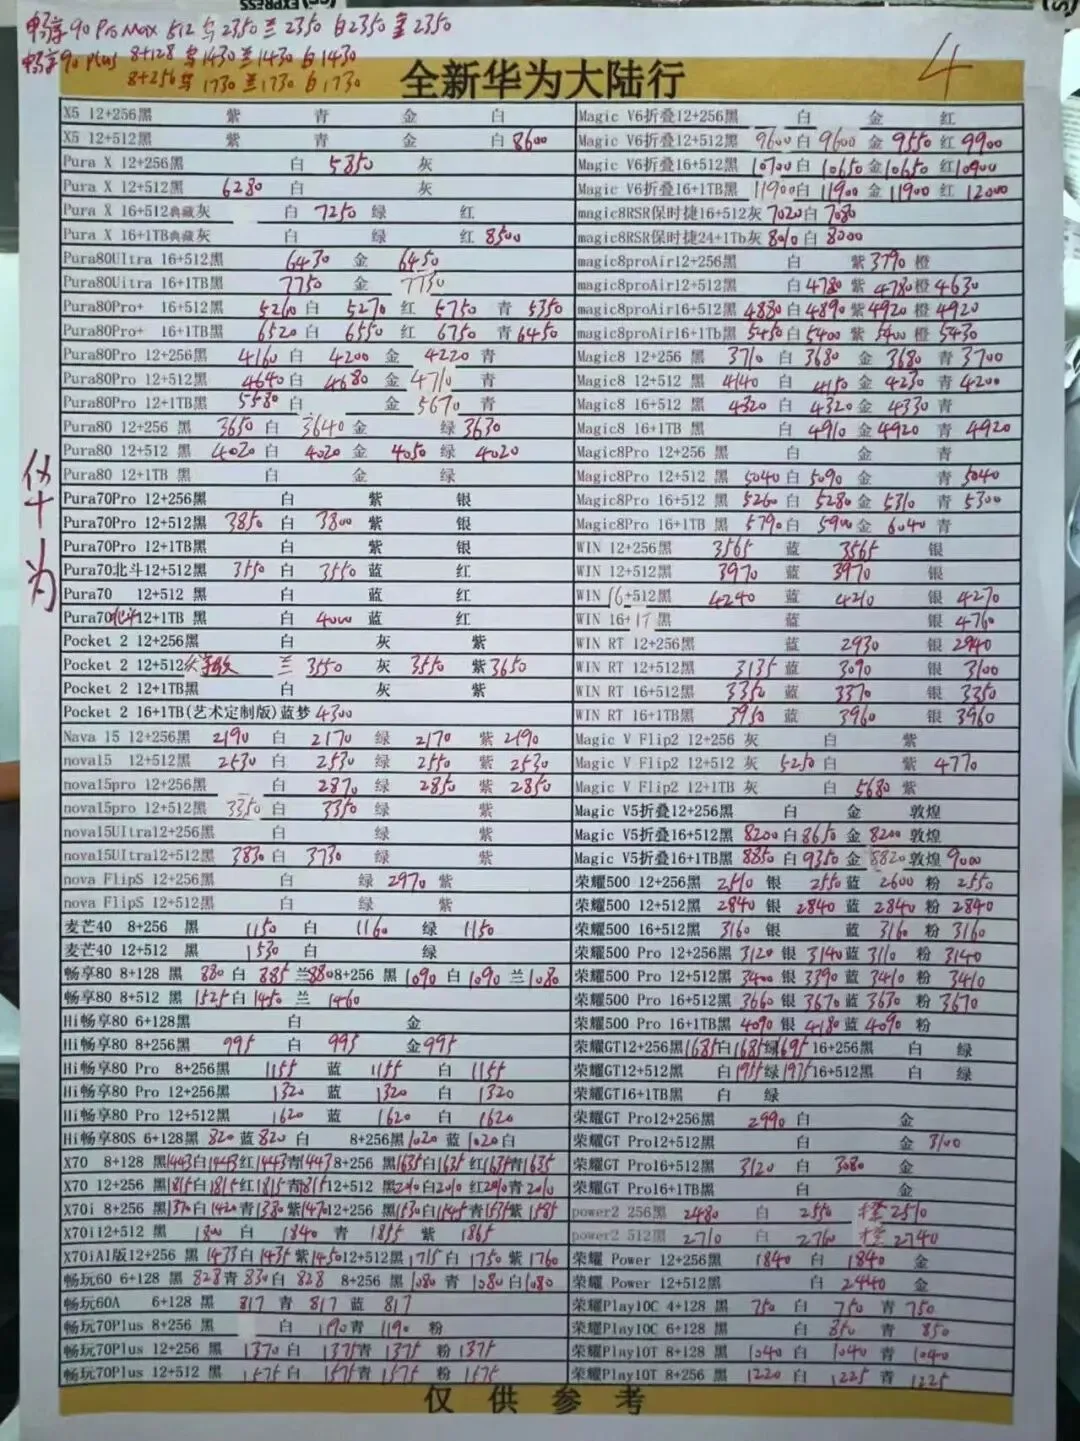 畅享90 Pro Max 512 黑2350 兰2350 白2350 金2350
畅享90 plus 8+128 黑1430 兰1430 白1430
8+256黑1730 兰1730 白1730
4
全新华为大陆行
华为
X5 12+256黑 紫 青 金 白
X5 12+512黑 紫 青 金 白8600
Pura X 12+256黑 白 5850 灰
Pura X 12+512黑 6280 白 灰
Pura X 16+512典藏灰 白 7250 绿 红
Pura X 16+1TB典藏灰 白 绿 红8500
Pura80Ultra 16+512黑 6430 金 6450
Pura80Uitra 16+1TB黑 7750 金 7730
Pura80Pro+ 16+512黑 5260白 5270 红 5750 青 5350
Pura80Pro+ 16+1TB黑 6520白 6550 红 6750 青6450
Pura80Pro 12+256黑 4160 白 4200 金 4220 青
Pura80Pro 12+512黑 4640白 4680 金 4710 青
Pura80Pro 12+1TB黑 5580白 金 5670 青
Pura80 12+256 黑 3650 白 3640金 绿3630
Pura80 12+512 黑 4020 白 4020 金 4050 绿 4020
Pura80 12+1TB 黑 白 金 绿
Pura70Pro 12+256黑 白 紫 银
Pura70Pro 12+512黑 3850 白 3800 紫 银
Pura70Pro 12+1TB黑 白 紫 银
Pura70北斗12+512黑 3550 白 3550 蓝 红
Pura70 12+512 黑 白 蓝 红
Pura70北斗12+1TB 黑 白 4000 蓝 红
Pocket 2 12+256黑 白 灰 紫
Pocket 2 12+512 兰 3550 灰 3550 紫3650
Pocket 2 12+1TB黑 白 灰 紫
Pocket 2 16+1TB(艺术定制版)蓝梦4300
Nava 15 12+256黑 2190 白 2170 绿 2170 紫2190
nova15 12+512黑 2530 白 2530 绿 2550 紫 2530
nova15pro 12+256黑 白 2870 绿 2850 紫 2850
nova15pro 12+512黑 3350 白 3350 绿 紫
nova15UItra12+256黑 白 绿 紫
nova15UItra12+512黑 3830 白 3730 绿 紫
nova FlipS 12+256黑 白 绿 2970 紫
nova FlipS 12+512黑 白 绿 紫
麦芒40 8+256 黑 1150 白 1160 绿 1150
麦芒40 12+512 黑 1530 白 绿
畅享80 8+128 黑 880 白 885 兰880 8+256 黑1090 白1090 兰1080
畅享80 8+512 黑 1525白1450 兰 1460
Hi畅享80 6+128黑 白 金
Hi畅享80 8+256黑 995 白 995 金995
Hi畅享80 Pro 8+256黑 1155 蓝 1155 白 1155
Hi畅享80 Pro 12+256黑 1320 蓝 1320 白 1320
Hi畅享80 Pro 12+512黑 1620 蓝 1620 白 1620
Hi畅享80S 6+128黑 820 蓝820 白 8+256黑1020 蓝1020白
X70 8+128 黑1443白1443红1443青1443 8+256 黑1635白1635 红1635青1635
X70 12+256 黑1815白1815红1815青1815 12+512 黑2010白2010 红2010青2010
X70i 8+256 黑1370白1420青1380紫1470 12+256 黑1530白1545青1535紫1585
X70i12+512 黑 1800 白 1840 青 1855 紫 1865
X70iAI版12+256 黑1433白1435紫1450 12+512黑1715白1750紫1760
畅玩60 6+128 黑 828青830白 828 8+256 黑1080 青 1080白1080
畅玩60A 6+128 黑 817 青 817 蓝 817
畅玩70Plus 8+256 黑 白 1190青 1190 粉
畅玩70Plus 12+256 黑 1370白 1375青 1375 粉 1375
畅玩70Plus 12+512 黑 1575白 1575青 1575 粉 1575
Magic V6折叠12+256黑 白 金 红
Magic V6折叠12+512黑 9600白 9600 金 9550 红 9900
Magic V6折叠16+512黑 10700白10650金10650红10900
Magic V6折叠16+1TB黑 11900白11900 金 11900 红 12000
magic8RSR保时捷16+512灰 7020白 7080
magic8RSR保时捷24+1Tb灰 8010白 8000
magic8proAir12+256黑 白 紫3790橙
magic8proAir12+512黑 白4780紫 4780橙4630
magic8proAir16+512黑 4880白4890紫4920橙4920
magic8proAir16+1Tb黑 5450白5400 紫 5400 橙 5430
Magic8 12+256 黑 3710 白 3680 金 3680 青3700
Magic8 12+512 黑 4140 白 4150 金 4230 青4200
Magic8 16+512 黑 4320 白 4320金 4330 青
Magic8 16+1TB 黑 白 4910 金4920 青 4920
Magic8Pro 12+256 黑 白 金 青
Magic8Pro 12+512 黑 5040白5090 金 青 5040
Magic8Pro 16+512 黑 5260 白 5280金 5310 青 5300
Magic8Pro 16+1TB 黑 5790白 5900金 6040青
WIN 12+256黑 3565 蓝 3565 银
WIN 12+512黑 3970 蓝 3970 银
WIN 16+512黑 4240 蓝 4210 银 4270
WIN 16+1T黑 蓝 银 4760
WIN RT 12+256黑 蓝 2930 银2940
WIN RT 12+512黑 3135 蓝 3090 银 3100
WIN RT 16+512黑 3350 蓝 3370 银 3350
WIN RT 16+1TB黑 3950 蓝 3960 银 3960
Magic V Flip2 12+256 灰 白 紫
Magic V Flip2 12+512 灰 5250白 紫 4770
Magic V Flip2 12+1TB 灰 白 5680 紫
Magic V5折叠12+256黑 白 金 敦煌
Magic V5折叠16+512黑8200白8650 金 8200 敦煌
Magic V5折叠16+1TB黑8850 白9350金 8820敦煌9000
荣耀500 12+256黑 2510 银 2550蓝 2600 粉 2550
荣耀500 12+512黑 2840 银 2840 蓝 2840 粉 2840
荣耀500 16+512黑 3160 银 蓝 3160 粉 3160
荣耀500 Pro 12+256黑 3120 银 3140蓝 3110 粉 3140
荣耀500 Pro 12+512黑 3400 银 3390蓝 3410 粉 3410
荣耀500 Pro 16+512黑 3660 银 3670蓝 3630 粉 3670
荣耀500 Pro 16+1TB黑4090 银 4180蓝 4090 粉
荣耀GT12+256黑1685白1685绿1695 16+256黑 白 绿
荣耀GT12+512黑 白1955绿1975 16+512黑 白 绿
荣耀GT16+1TB黑 白 绿
荣耀GT Pro12+256黑 2990 白 金
荣耀GT Pro12+512黑 白 金 3100
荣耀GT Pro16+512黑 3120 白 3080 金
荣耀GT Pro16+1TB黑 白 金
power2 256黑 2480 白 2550 橙2510
power2 512黑 2710 白 2760 橙2740
荣耀 Power 12+256黑 1840 白 1840 金
荣耀 Power 12+512黑 白 2440 金
荣耀Play10C 4+128 黑 750 白 750 青 750
荣耀Play10C 6+128 黑 白 850 青 850
荣耀Play10T 8+128 黑 1040 白 1040 青 1040
荣耀Play10T 8+256 黑 1220 白 1225 青 1225
仅供参考